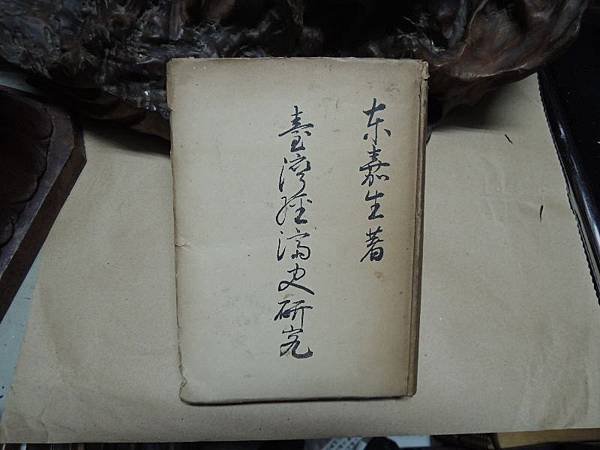 东嘉生著
臺灣經濟史研究